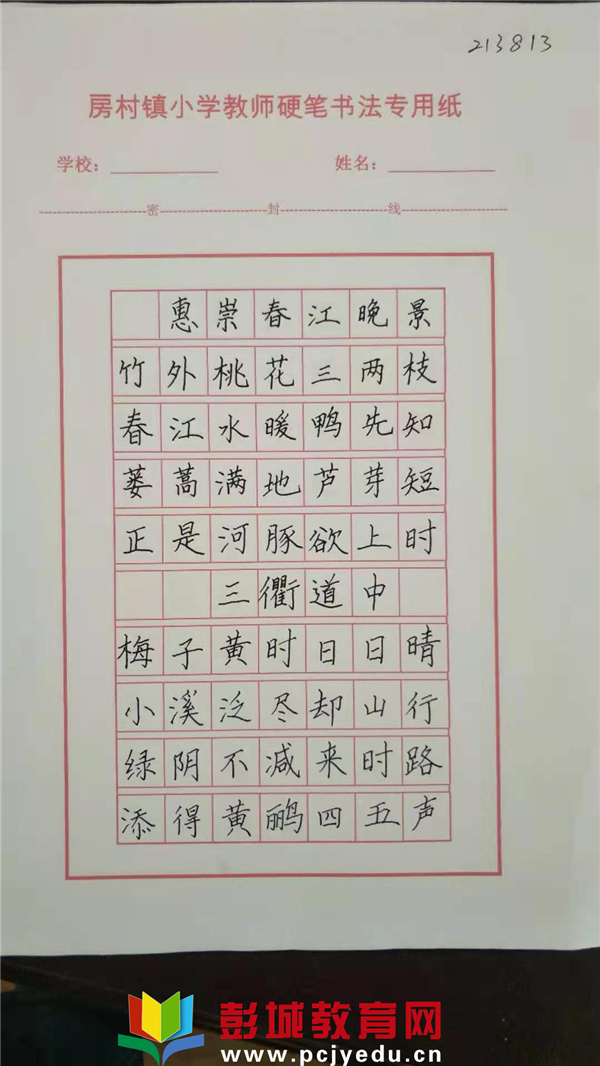 213813
房村镇小学教师硬笔书法专用纸
学校： 姓名：
密 封 线
惠崇春江晚景
竹外桃花三两枝
春江水暖鸭先知
蒌蒿满地芦芽短
正是河豚欲上时
三衢道中
梅子黄时日日晴
小溪泛尽却山行
绿阴不减来时路
添得黄鹂四五声
彭城教育网
www.pcjyedu.cn